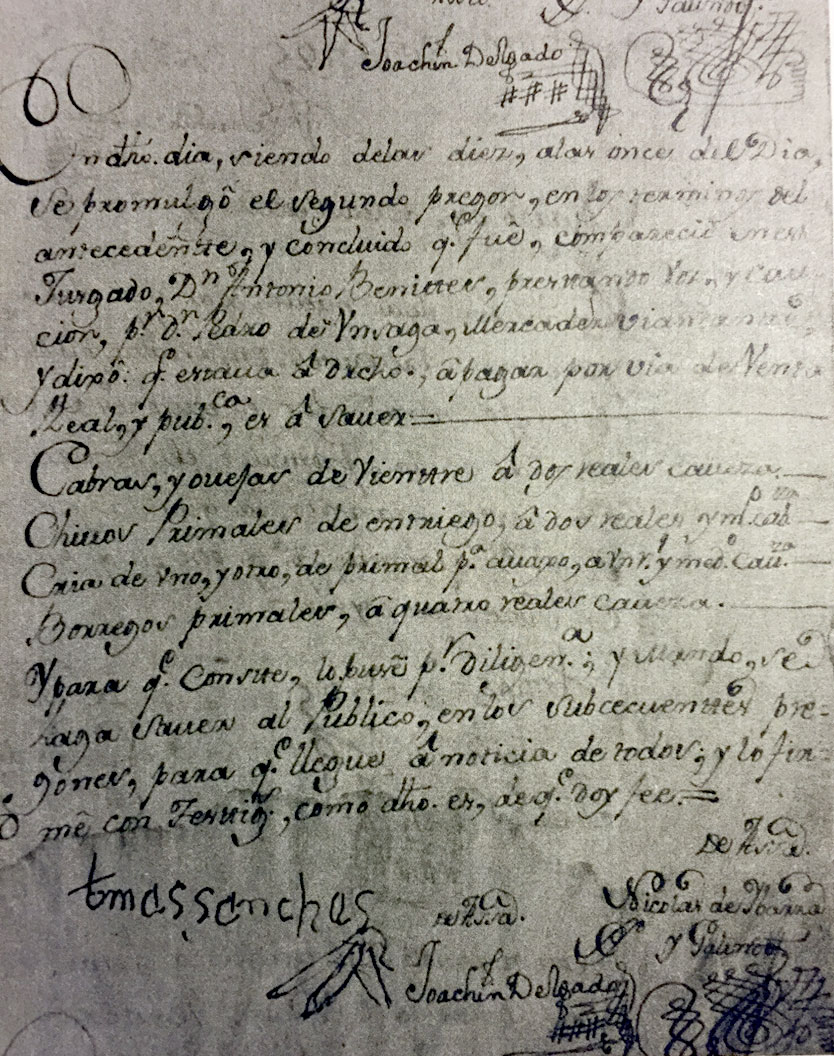 y Palintos.
Joachin Delgado
En dho. dia, siendo delas diez, alas once del Dia,
Se promulgô el segundo pregon, en los terminos del
antecedentte, y concluido q.e fuê, comparecio en est
Jusgado, Dn. Antonio Benittes, presttando Vos, y Cau
ciôn, p.r Dn. de Yn Mercader viandantte,
y dixô: q.e estaua â Dicho, â pagar por via de Ventta
Real, y pub.ca, es â sauer =
Cabras, y ouejas de Vienttre â dos reales caueza.
Chiuos Primales de entriego, â dos reales y m.o cab.za
Cria de uno, y otro, de primal p.a auaxo, a Vn r.l y med.o cau.za
Borregos primales, â quatro reales caueza.
Y para q.e Consтte, lo puse p.r Diligen.a; y Mando, se
haga sauer al Publico, en los subcecuenttes pre=
gones, para q.e llegue â noticia de todos; y lo fir=
mê con Testtig.s, como dho. es, de q.e doy fee. =
De Assa.
tmas sanches
De Assa.
Nicolas de Ybarra
y Palintos
Joachin Delgado